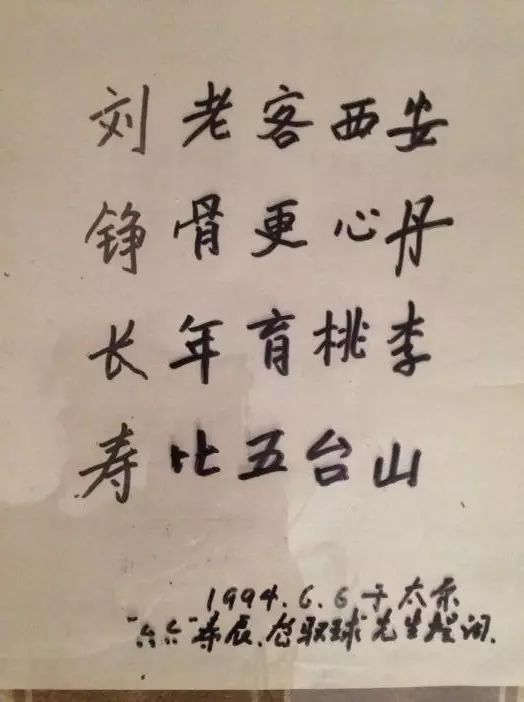 刘老客西安
铮骨更心丹
长年育桃李
寿比五台山
1994.6.6于太原
"六六"寿辰,范驭球先生题词.